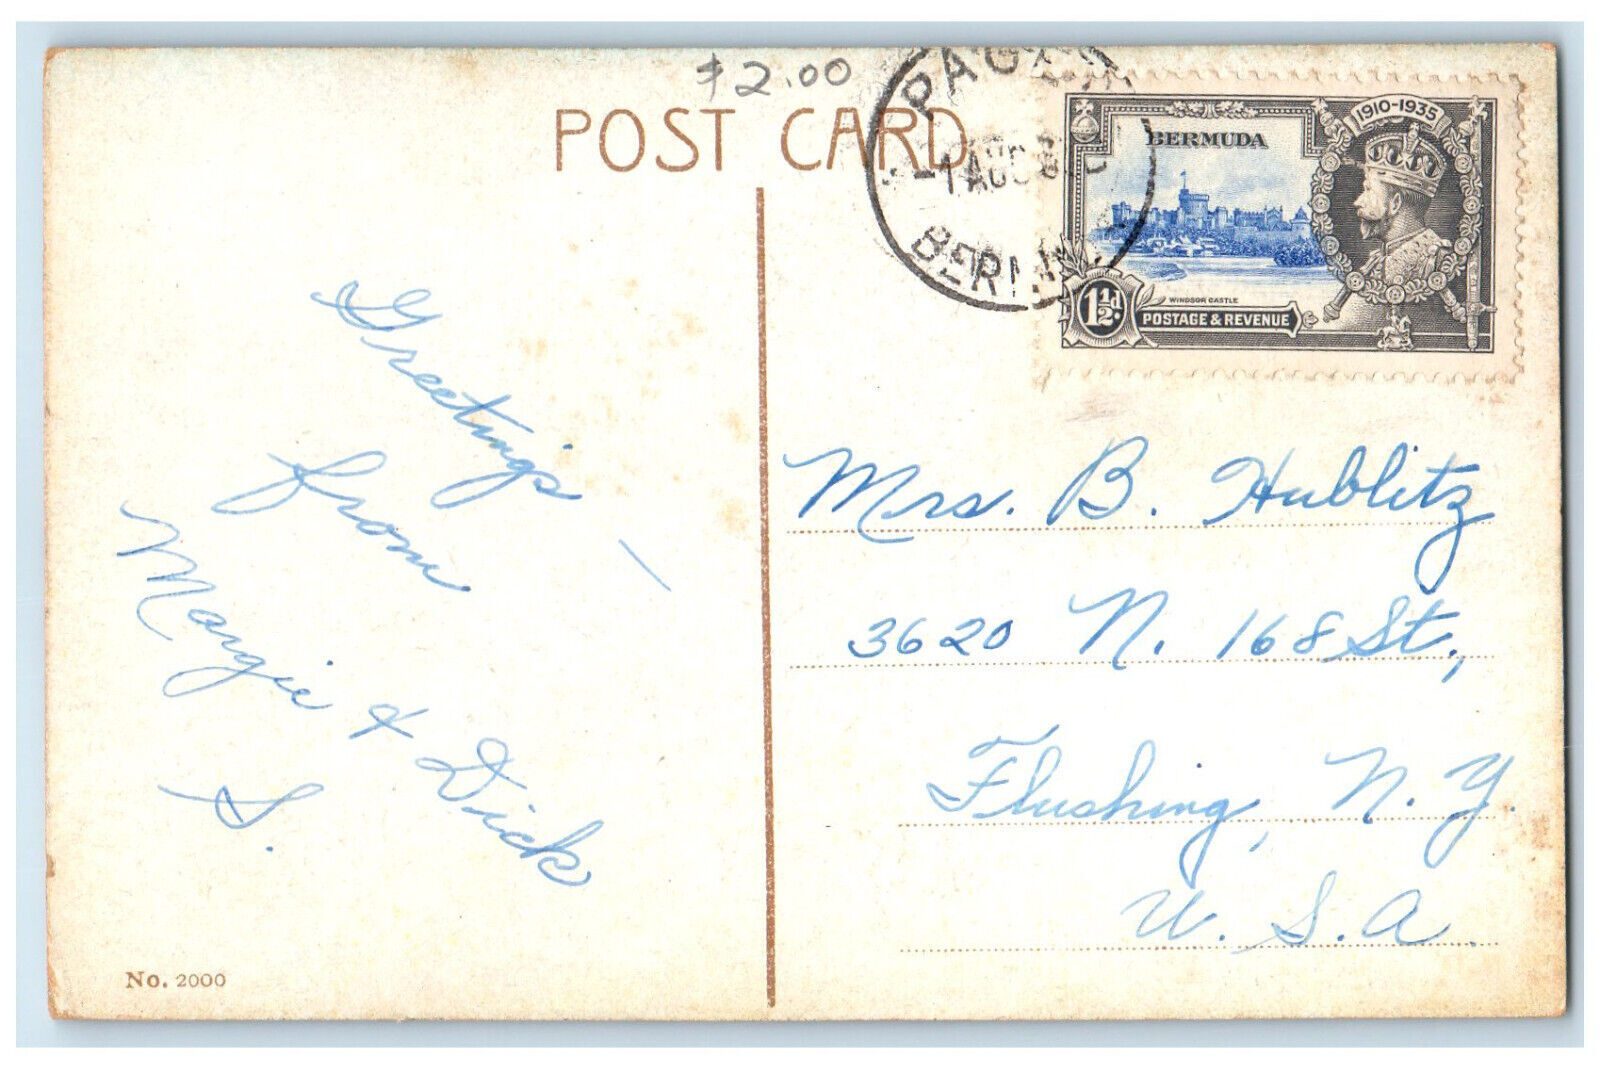 $2.00
POST CARD
BERMUDA
1910-1935
WINDSOR CASTLE
1½d.
POSTAGE & REVENUE
Greetings —
from
Margie & Dick
S.
Mrs. B. Hublitz
3620 N. 168 St.,
Flushing, N.Y.
U.S.A.
No. 2000